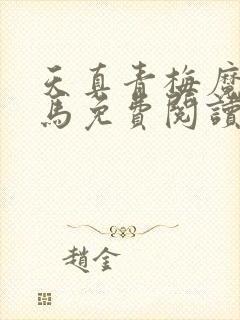 天真青梅魔
馬免費閱讀
趙金